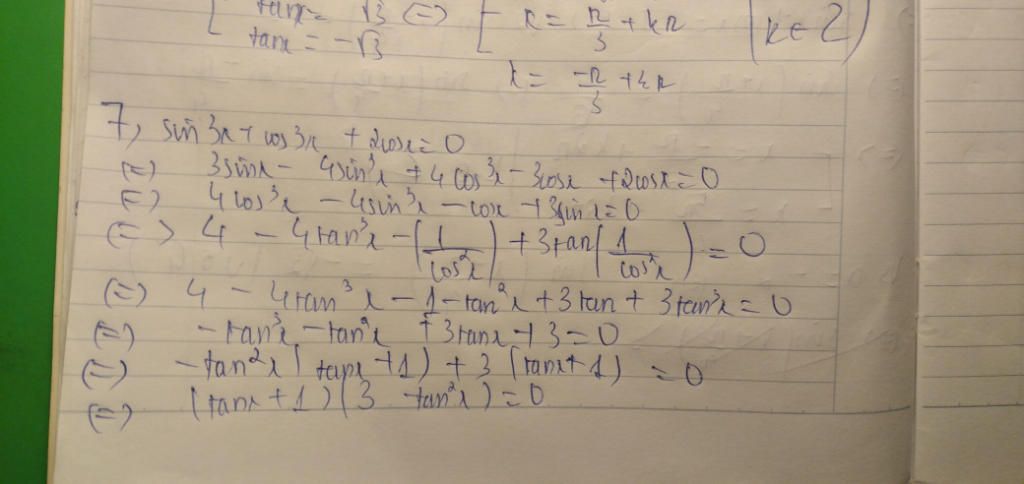 tanx = √3 (=) [ x = π/3 + kπ (k ∈ Z)
tanx = -√3
x = -π/3 + kπ
7, sin3x + cos3x + 2cosx = 0
(=) 3sinx - 4sin³x + 4cos³x - 3cosx + 2cosx = 0
(=) 4cos³x - 4sin³x - cosx + 3sinx = 0
(=) 4 - 4tan³x - (1/cos²x) + 3tan(1/cos²x) = 0
(=) 4 - 4tan³x - 1 - tan²x + 3tan + 3tan³x = 0
(=) -tan³x - tan²x + 3tanx + 3 = 0
(=) -tan²x(tanx + 1) + 3(tanx + 1) = 0
(=) (tanx + 1)(3 - tan²x) = 0